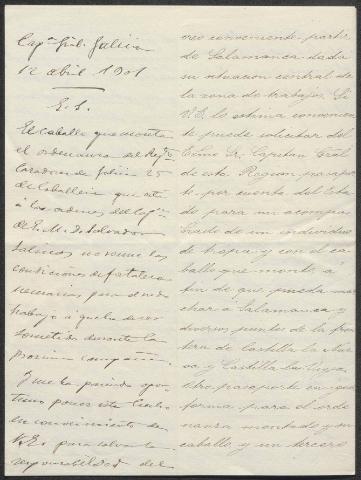 Capª Gral. Galicia
12 abril 1901
E. S.
El caballo que monta
el ordenanza del Regto
Cazadores de Galicia 25
de Caballeria que está
á las ordenes del Capn
de E. M. D. Salvador
Salinas no reune las
condiciones de fortaleza
necesarias para el rudo
trabajo á que ha de ser
sometido durante la
proxima campaña.
Y me ha parecido opor-
tuno poner este hecho
en conocimiento de
V.E. para salvar la
responsabilidad del
creo conveniente partir
de Salamanca dada
su situacion central de
la zona de trabajos. Si
V.E. lo estima convenien
te puede solicitar del
Excmo Sr. Capitan Gral
de esta Region pasapor
te, por cuenta del Esta
do para mi acompa
ñado de un individuo
de tropa y con el ca
ballo que monto, á
fin de que pueda mar
char á Salamanca y
diversos puntos de la fron
tera de Castilla la Nue
va y Castilla la Vieja,
otro pasaporte en igual
forma para el orde
nanza montado y su
caballo y un tercero